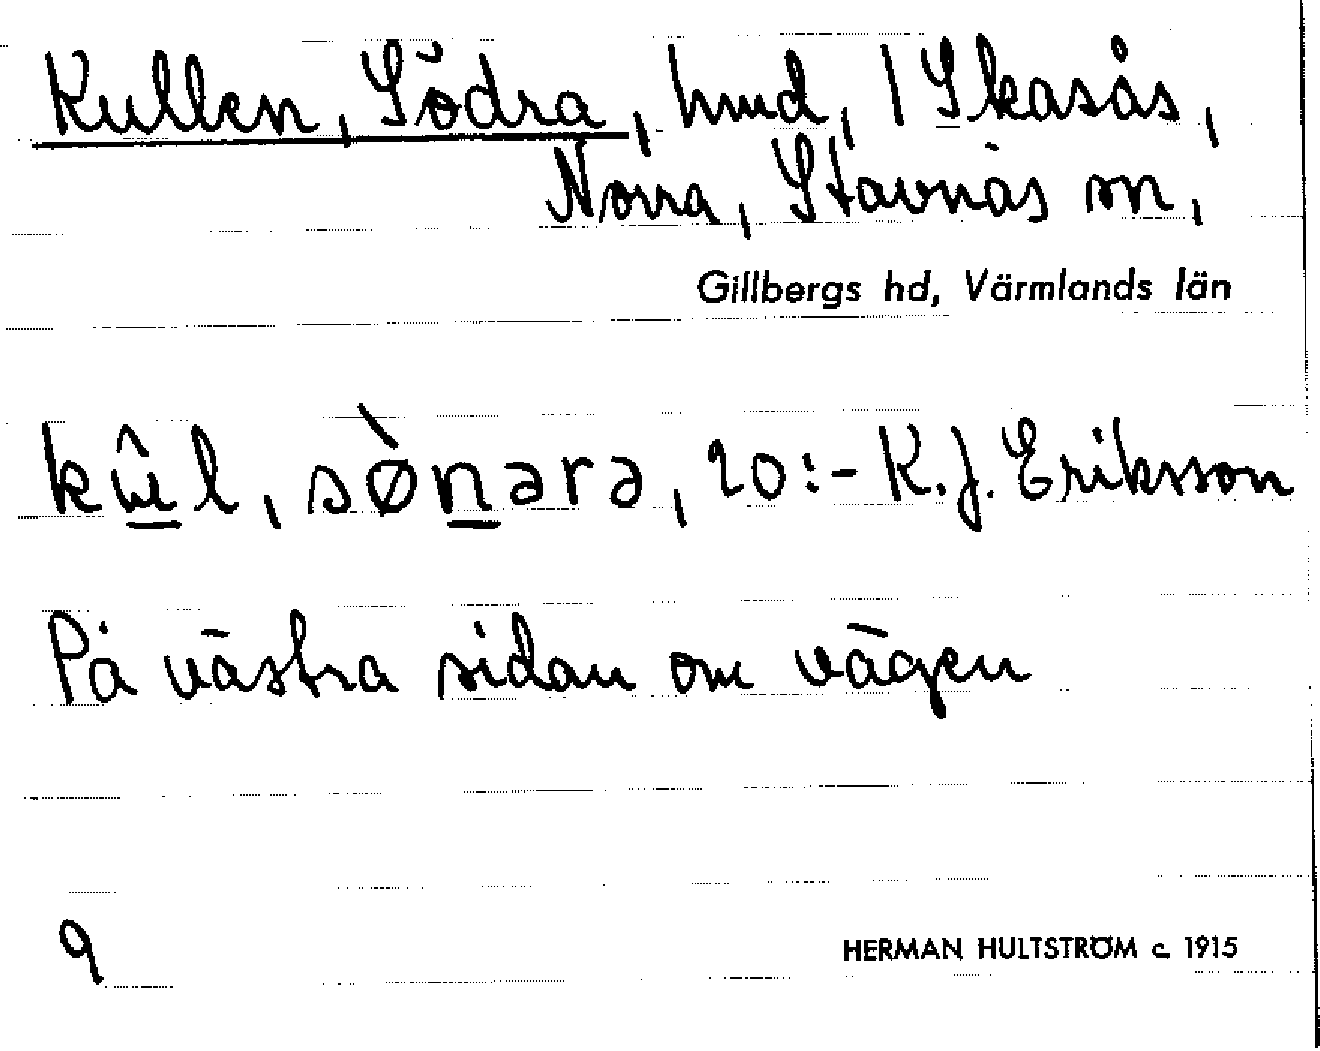 Kullen, Södra, hmd, 1 Skasås,
Norra, Stavnäs sn,
Gillbergs hd, Värmlands län
kɯ̂l, sø̀nara, 20:- K.J. Eriksson
På västra sidan om vägen
9
HERMAN HULTSTRÖM c. 1915